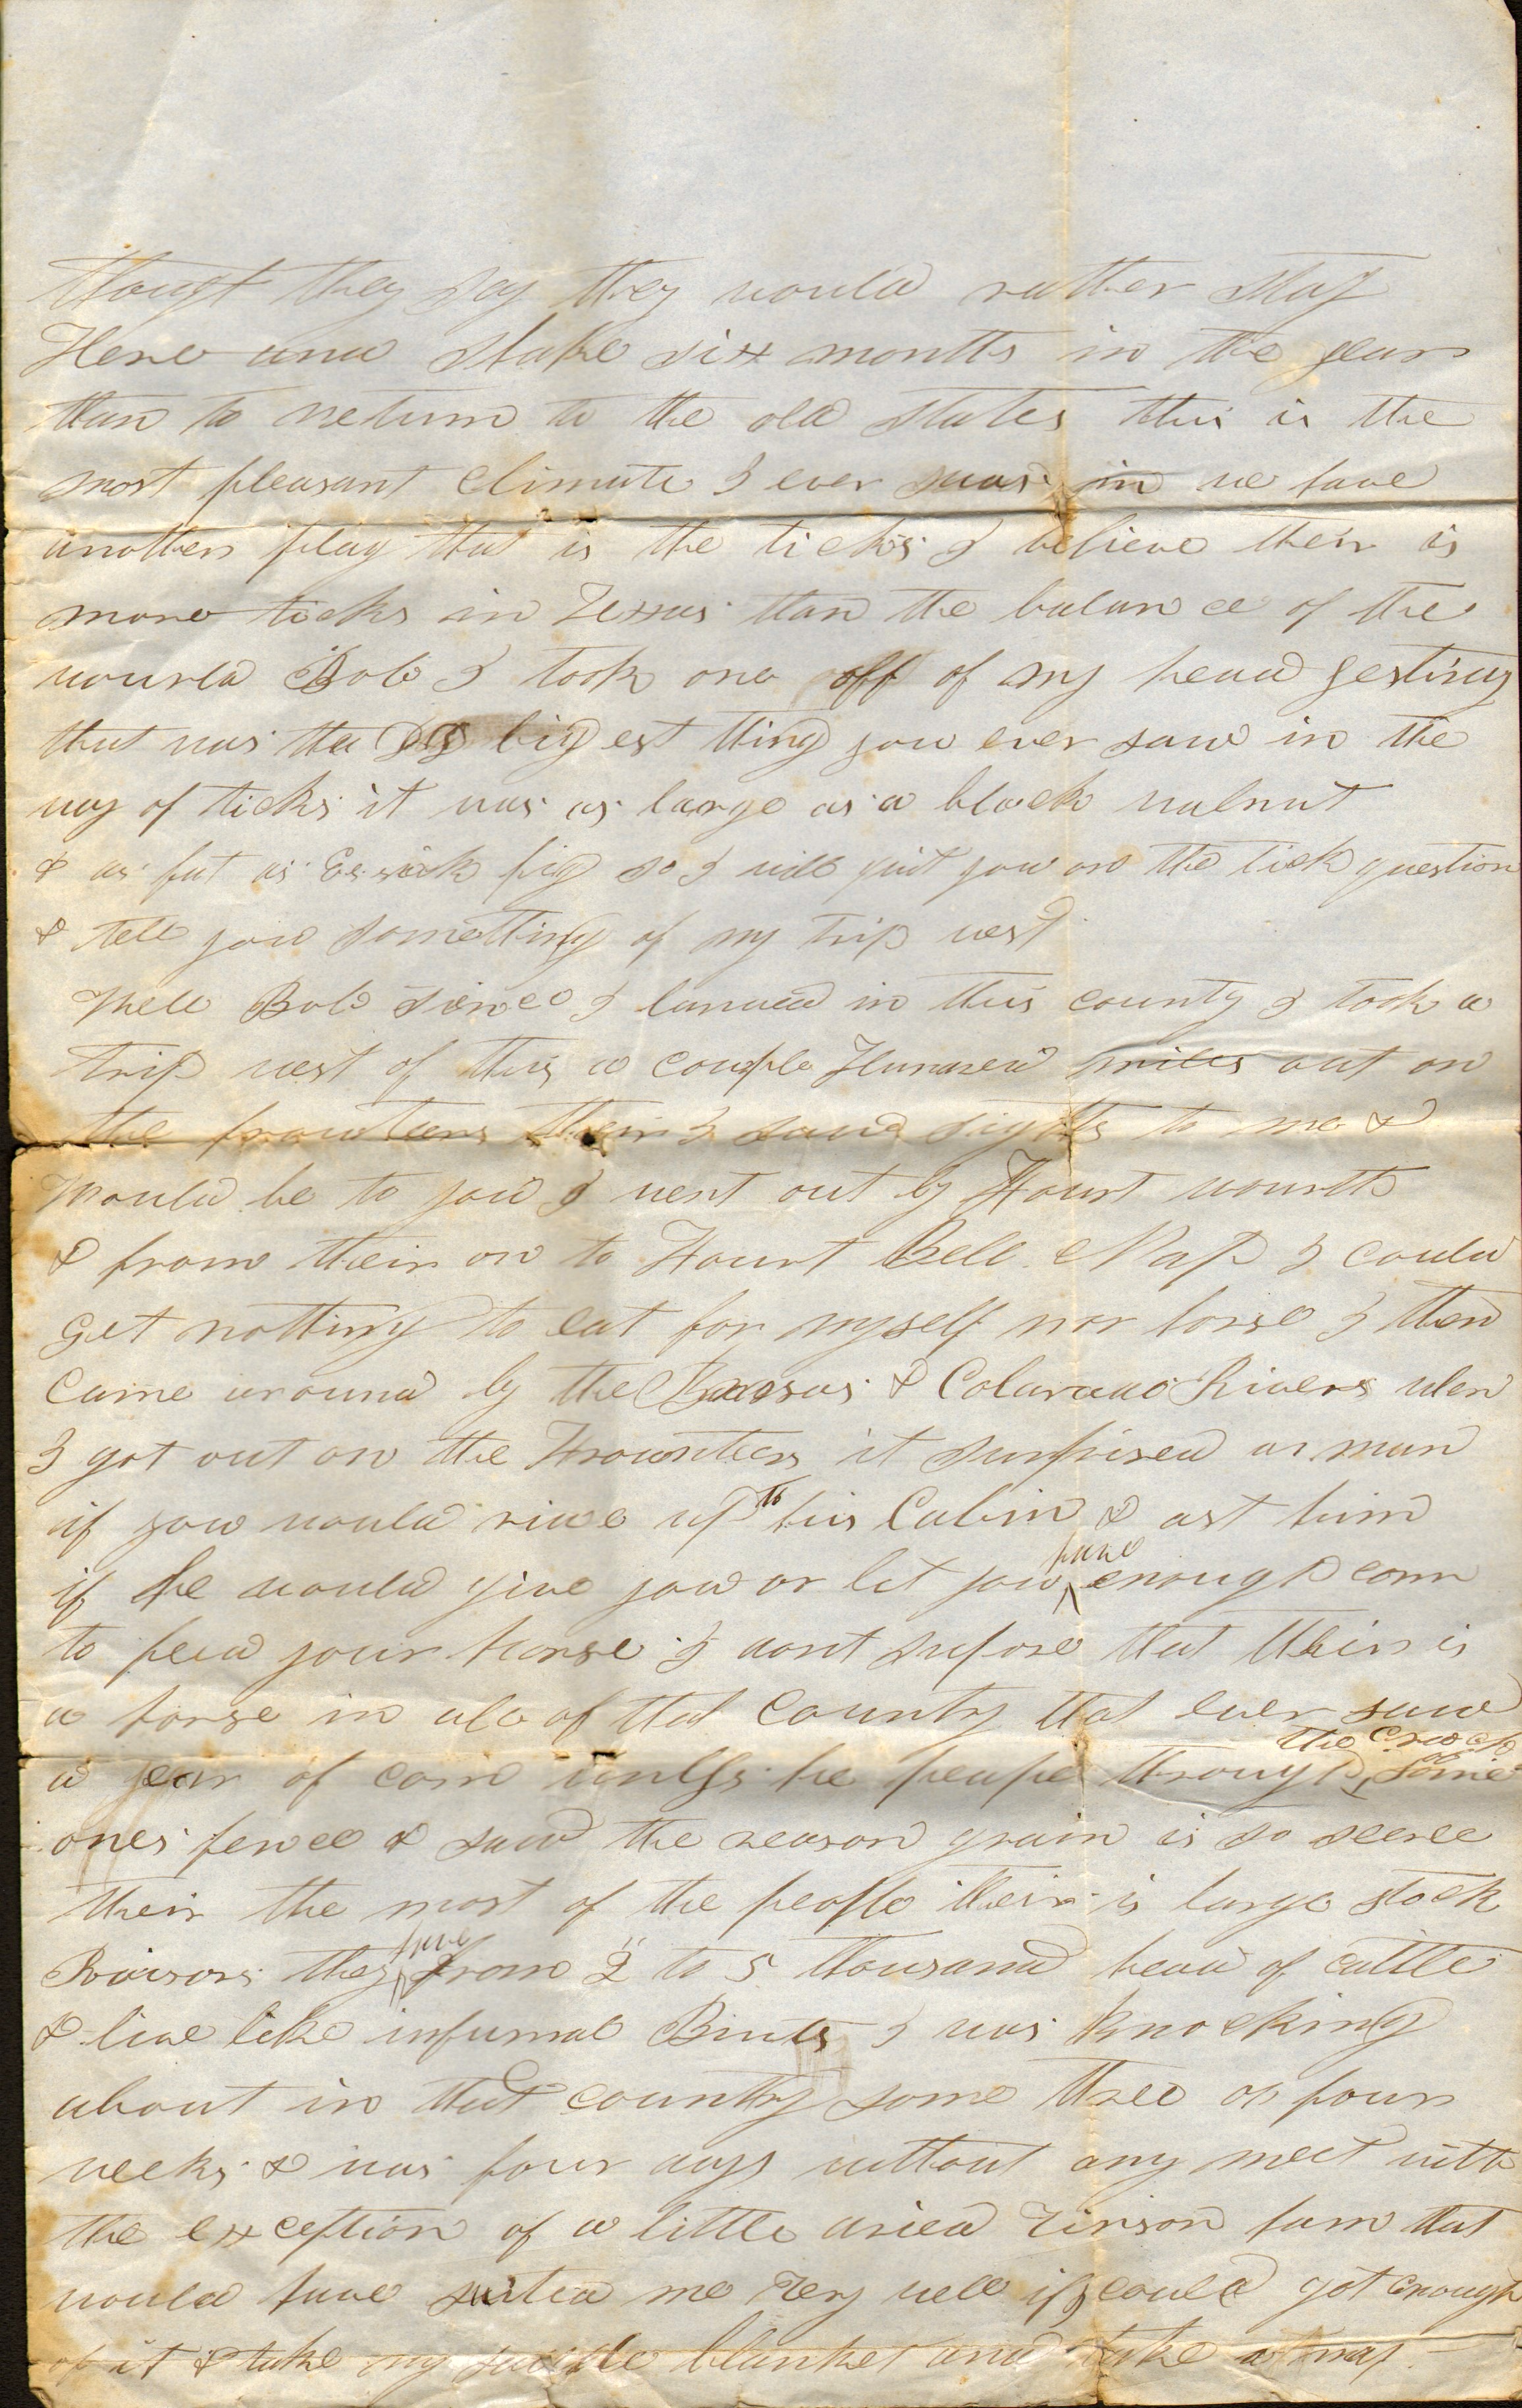 thougt they say they would rather stay
Here and shake six months in the year
than to return to the old states this is the
most pleasant climate I ever was in we have
another plag that is the ticks I believe their is
more ticks in Texas than the balance of the
wourld Bob I took one off of my head yesterday
that was the bigest thing you ever saw in the
way of ticks it was as large as a black walnut
& as fat as pig so I will quit you on the tick question
& tell you something of my trip west
Well Bob since I landed in this county I took a
trip west of this a couple Hundred miles out on
the frounteers their I saw sights to me &
Would be to you I went out by Fourt wourth
& from their on to Fourt Bell Nap I could
get nothing to eat for myself nor horse I then
came around by the Brasos & Colarado Rivers when
I got out on the Frounteers it surprised a man
if you would ride up to his Cabin & ast him
if he would give you or let you have enough corn
to feed your horse I dont supose that their is
a horse in all of that County that ever saw
a year of corn unless he peaped through the crack of some
ones fence & saw the reason grain is so scerce
their the most of the people their is large stock
Raisors they have from 2 to 5 thousand head of cattle
& live like infurnal Bruts I was knocking
about in that country some three or four
weeks & was four days without any meet with
the exception of a little dried Vinson ham that
would have suited me very well if I could got enough
of it & take my saddle blanket and take a nap